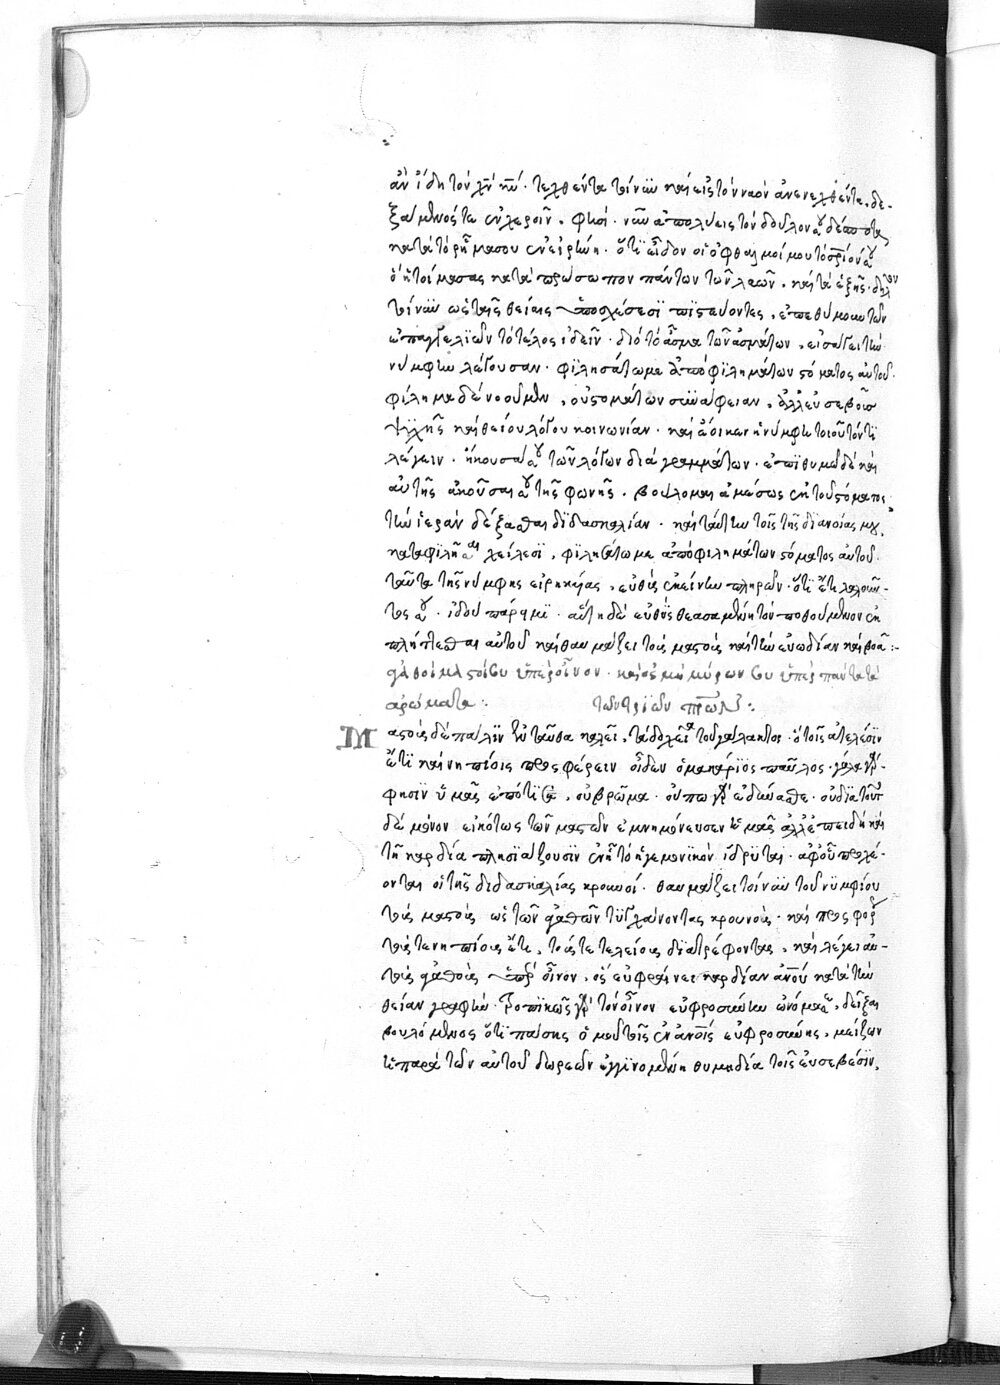 ἂν ἴδῃ τὸν χ̅ν̅ κ̅υ̅. τεχθέντα τοίνυν καὶ εἰς τὸν ναὸν ἀνενεχθέντα, δε-
ξάμενός τε ἐν χεροῖν, φησὶ. νῦν ἀπολύεις τὸν δοῦλον σου δέσποτα
κατὰ τὸ ῥῆμά σου ἐν εἰρήνῃ. ὅτι εἶδον οἱ ὀφθαλμοί μου τὸ σ̅ρ̅ιόν σου
ὃ ἡτοίμασας κατὰ πρόσωπον πάντων τῶν λαῶν. καὶ τὰ ἑξῆς. δῆλον
τοίνυν ὡς ταῖς θείαις ὑποσχέσεσι πιστεύοντες, ἐπεθύμουν τῶν
ἐπαγγελιῶν τὸ τέλος ἰδεῖν. διὸ τὸ ᾆσμα τῶν ἀσμάτων, εἰσάγει τὴν
νύμφην λέγουσαν. φιλησάτω με ἀπὸ φιλημάτων στόματος αὐτοῦ.
φίλημα δὲ νοοῦμεν, οὐ στομάτων συνάφειαν, ἀλλ' εὐσεβοῦς
ψυχῆς καὶ θείου λόγου κοινωνίαν. καὶ ἔοικεν ἡ νύμφη τοιοῦτόν τι
λέγειν. ἤκουσά σου τῶν λόγων διὰ γραμμάτων. ἐπιθυμῶ δὲ καὶ
αὐτῆς ἀκοῦσαί σου τῆς φωνῆς. βούλομαι ἀμέσως ἐκ τοῦ στόματος
τὴν ἱερὰν δέξασθαι διδασκαλίαν. καὶ ταύτην τοῖς τῆς διανοίας μου
καταφιλῆσαι χείλεσι, φιλησάτω με ἀπὸ φιλημάτων στόματος αὐτοῦ.
ταῦτα τῆς νύμφης εἰρηκυίας, εὐθὺς ἐκεῖνην πληρῶν. ὅτι ἔτι λαλοῦν-
τός σου. ἰδοὺ πάρειμι. αὕτη δὲ εὐθὺς θεασαμένη τὸν ποθούμενον ἐκ
πλήττεται αὐτοῦ καὶ θαυμάζει τοὺς μαστοὺς καὶ τὴν εὐωδίαν καὶ βοᾷ:-
ἀγαθοὶ μαστοί σου ὑπὲρ οἶνον. καὶ ὀσμὴ μύρων σου ὑπὲρ πάντα τὰ
ἀρώματα: τῶν τριῶν πρ̅ω̅ν̅:
Μαστοὺς δὲ πάλιν ἐνταῦθα καλεῖ, τὰ δοχεῖα τοῦ γάλακτος. ὃ τοῖς ἀτελέσιν
ἔτι καὶ νηπίοις προσφέρειν οἶδεν ὁ μακάριος παῦλος. γάλα γὰρ
φησιν ὑμᾶς ἐπότισα, οὐ βρῶμα. οὔπω γὰρ ἐδύνασθε. οὐ διὰ τοῦτο
δὲ μόνον εἰκότως τῶν μαστῶν ἐμνημόνευσεν ἡμᾶς ἀλλ' ἐπειδὴ καὶ
τῇ καρδίᾳ πλησιάζουσιν ἐν ᾗ τὸ ἡγεμονικὸν ἵδρυται. ἀφ' οὗ προχέ-
ονται οἱ τῆς διδασκαλίας κρουνοί. θαυμάζει τοίνυν τοῦ νυμφίου
τοὺς μαστοὺς ὡς τῶν ἀγαθῶν τυγχάνοντας κρουνοὺς. καὶ προσφόρως
τούς τε νηπίους ἔτι, τούς τε τελείους διατρέφοντας, καὶ λέγει αὐ-
τοὺς ἀγαθοὺς ὑπὲρ οἶνον, ὃς εὐφραίνει καρδίαν ἀ̅ν̅ο̅υ̅ κατὰ τὴν
θείαν γραφήν. τροπικῶς γὰρ τὸν οἶνον εὐφροσύνην ὠνόμασε, δεῖξαι
βουλόμενος ὅτι πάσης ὁμοῦ τῆς ἐν ἀ̅ν̅ο̅ι̅ς εὐφροσύνης, μείζων
ἡ παρὰ τῶν αὐτοῦ δωρεῶν ἐγγινομένη θυμηδία τοῖς εὐσεβέσιν,